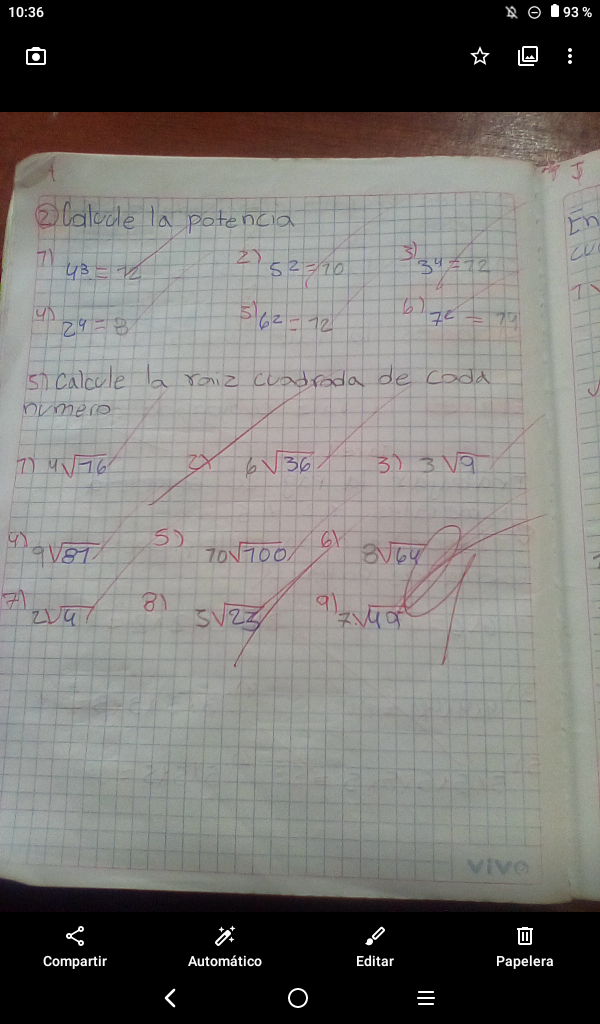 10:36
93 %
② Calcule la potencia
1) 4³ = 12 2) 5² = 10 3) 3⁴ = 12
4) 2⁴ = 8 5) 6² = 12 6) 7² = 14
5) Calcule la raiz cuadrada de cada
numero
1) 4√16 2) 6√36 3) 3√9
4) 9√81 5) 10√100 6) 8√64
7) 2√4 8) 5√23 9) 7√49
vive
Compartir Automático Editar Papelera